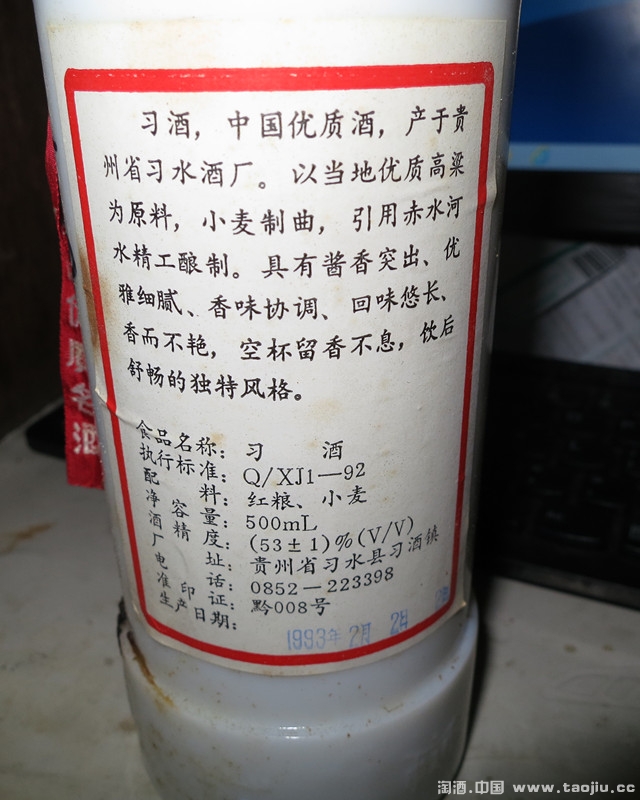 习酒，中国优质酒，产于贵
州省习水酒厂。以当地优质高粱
为原料，小麦制曲，引用赤水河
水精工酿制。具有酱香突出、优
雅细腻、香味协调、回味悠长、
香而不艳，空杯留香不息，饮后
舒畅的独特风格。
食品名称：习 酒
执行标准：Q/XJ1—92
配 料：红粮、小麦
净 容 量：500mL
酒 精 度：(53±1)%(V/V)
厂 址：贵州省习水县习酒镇
电 话：0852—223398
准 印 证：黔008号
生产日期：
1993年 2月 2日
名酒
淘酒.中国 www.taojiu.cc